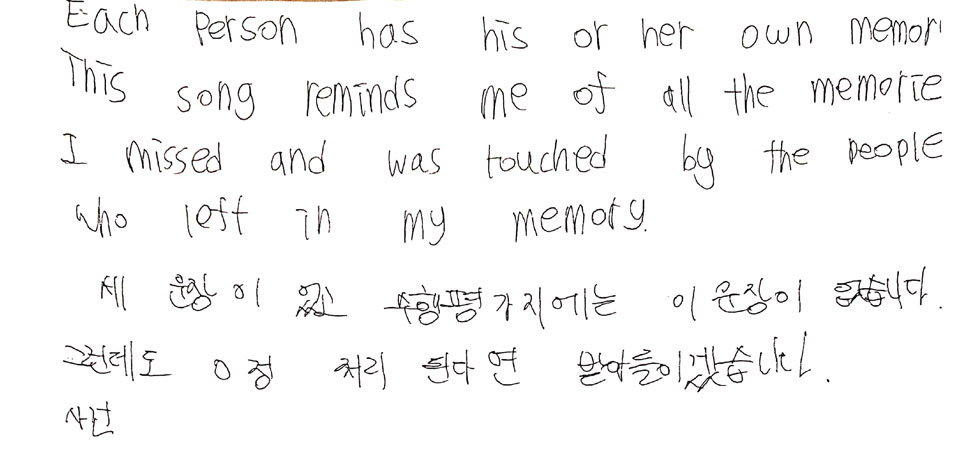 Each person has his or her own memori
This song reminds me of all the memorie
I missed and was touched by the people
who left in my memory.
제 문장이 없고 수행평가지에는 이 문장이 있습니다.
그런데도 0정 처리 된다면 받아들이겠습니다.
사건